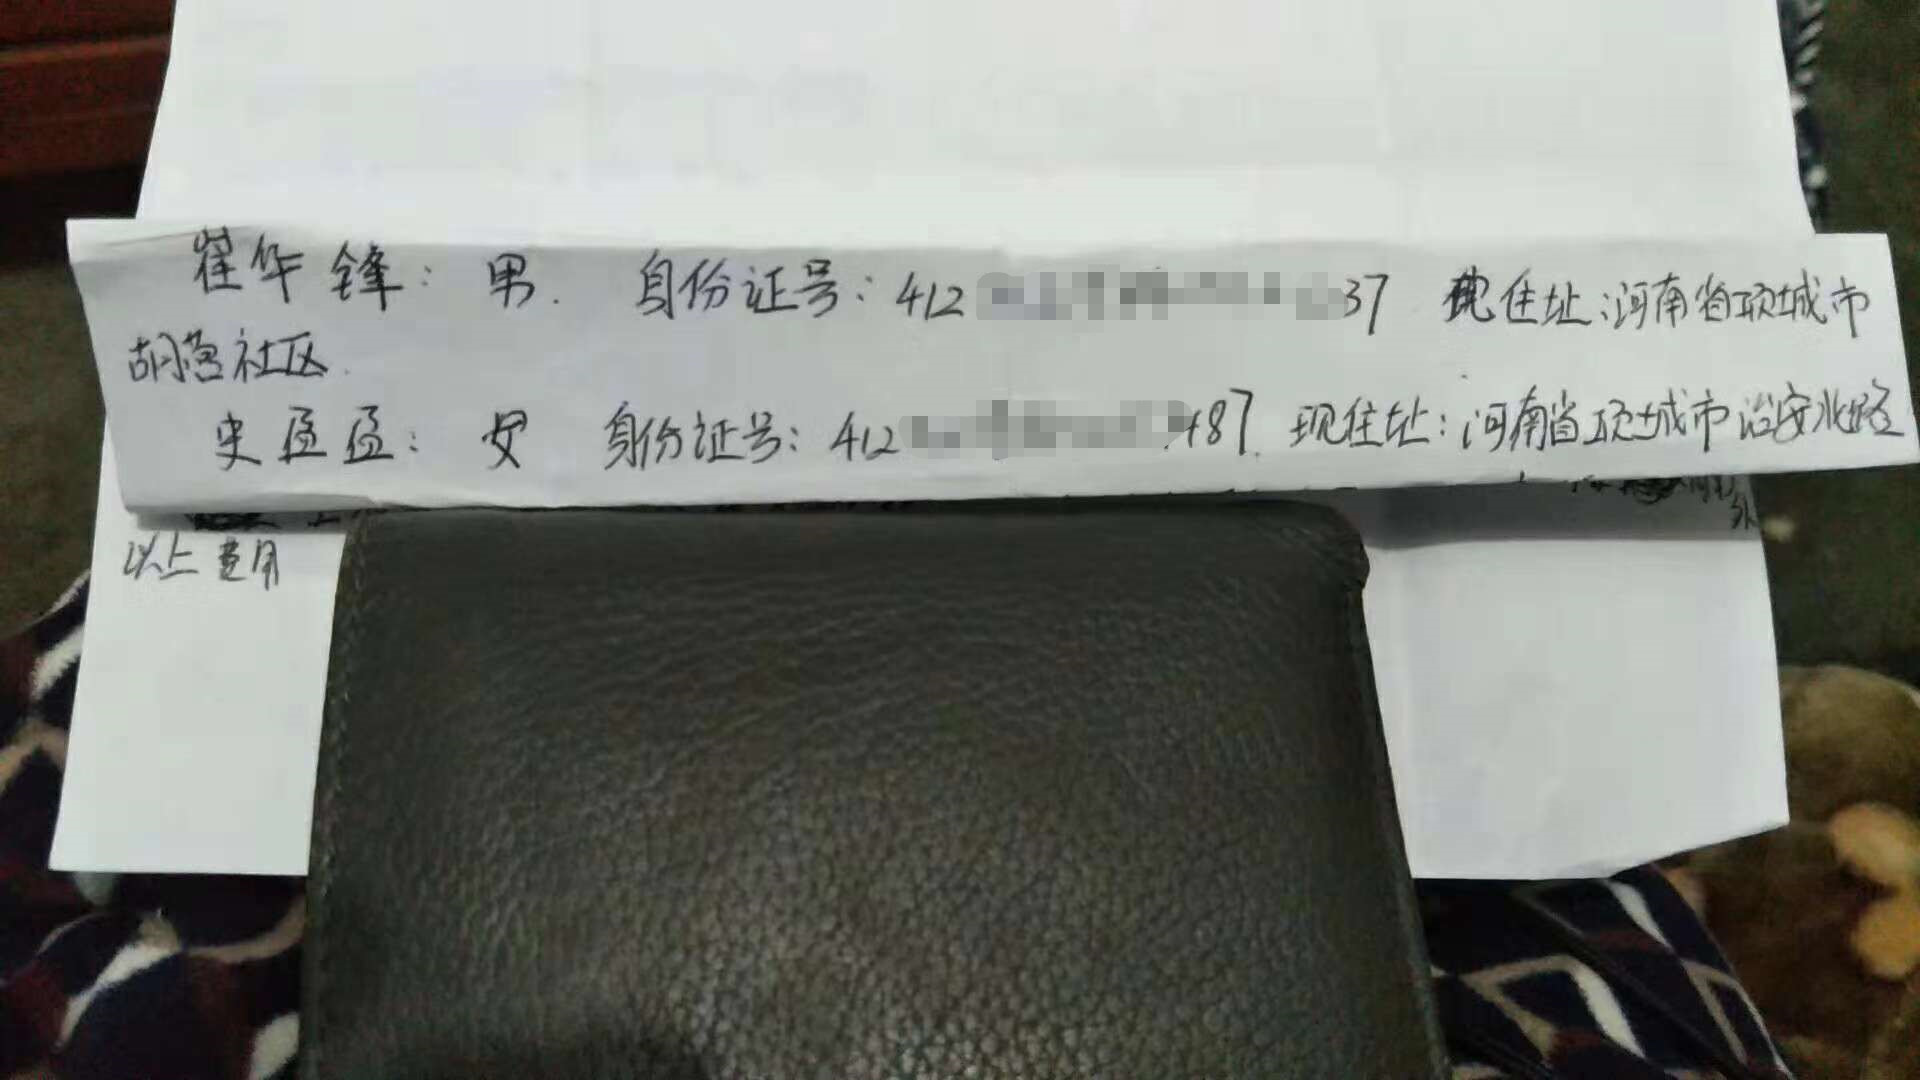 崔华锋：男．身份证号：412 37 现住址：河南省项城市
胡营社区．
史孟孟：女 身份证号：412 487．现住址：河南省项城市治安北路
以上费用